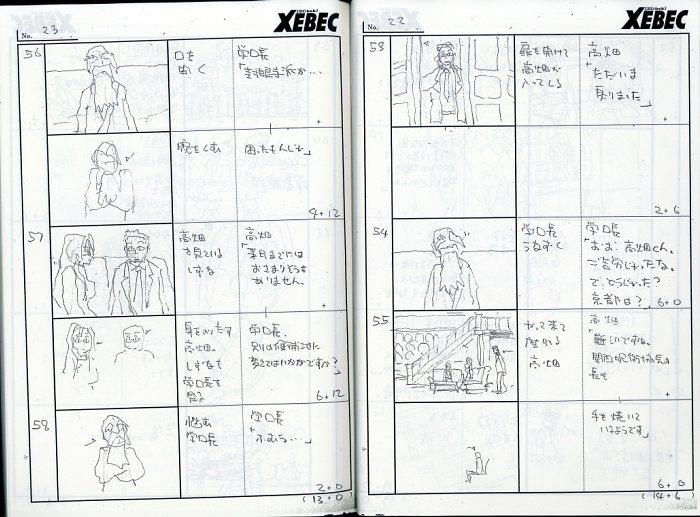 No. 22
XEBEC
53
扉を開けて
高畑が
入ってくる
高畑
「ただいま
戻りました」
2+6
54
学園長
うなずく
学園長
「おお、高畑くん。
ご苦労じゃったな。
で、どうじゃった?
京都は?」
6+0
55
やって来て
座る
高畑
高畑
「難しいですね。
関西呪術協会の
長も
手を焼いて
いるようです」
6+0
(14+6)
No. 23
XEBEC
56
口を
開く
学園長
腕をくむ
困ったもんじゃ」
4+12
57
高畑
を見ている
しずな
高畑
「来月までには
おさまりそうも
ありません。
身をのりだす
高畑。
しずなも
学園長を
見る
学園長、
別の候補地に
変えてはいかがですか?」
6+12
58
悩む
学園長
学園長
「ふむう…」
2+0
(13+0)